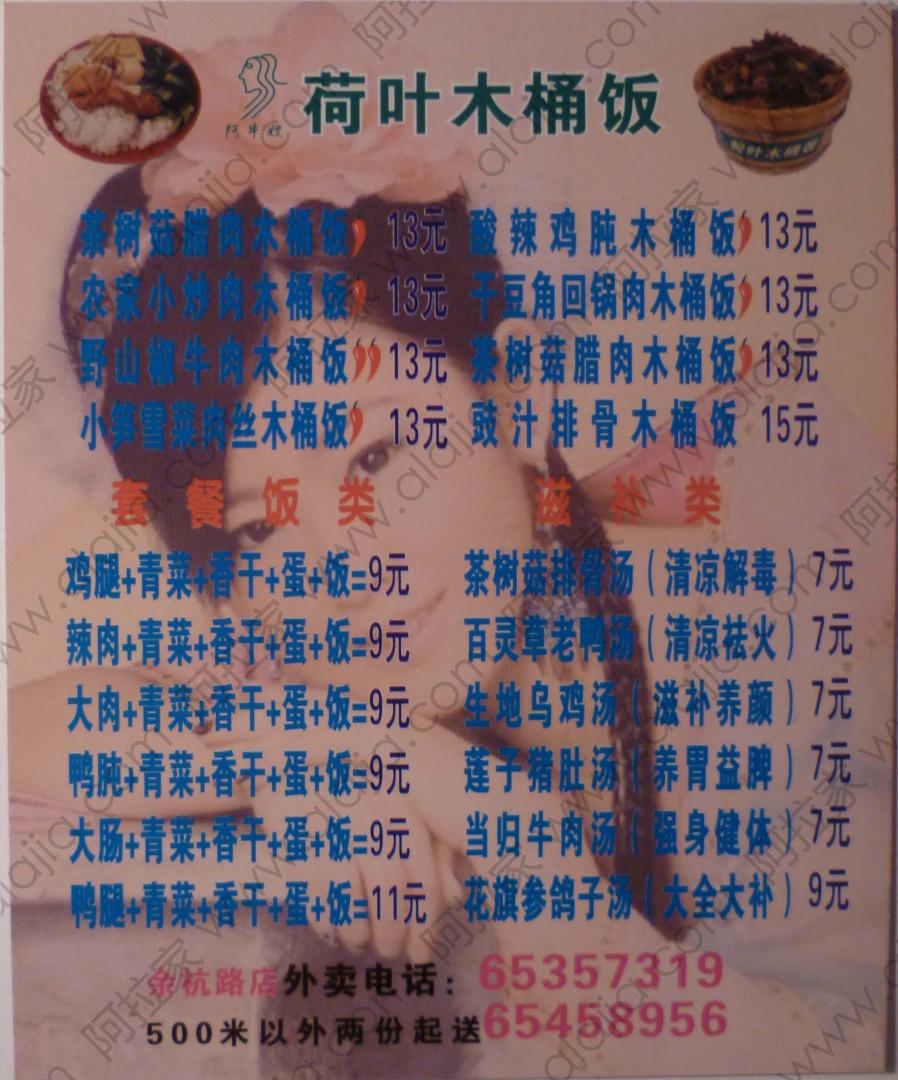 阿牛嫂
荷叶木桶饭
荷叶木桶饭
茶树菇腊肉木桶饭 13元
酸辣鸡肫木桶饭 13元
农家小炒肉木桶饭 13元
干豆角回锅肉木桶饭 13元
野山椒牛肉木桶饭 13元
茶树菇腊肉木桶饭 13元
小笋雪菜肉丝木桶饭 13元
豉汁排骨木桶饭 15元
套餐饭类
鸡腿+青菜+香干+蛋+饭=9元
辣肉+青菜+香干+蛋+饭=9元
大肉+青菜+香干+蛋+饭=9元
鸭肫+青菜+香干+蛋+饭=9元
大肠+青菜+香干+蛋+饭=9元
鸭腿+青菜+香干+蛋+饭=11元
滋补类
茶树菇排骨汤(清凉解毒)7元
百灵草老鸭汤(清凉祛火)7元
生地乌鸡汤(滋补养颜)7元
莲子猪肚汤(养胃益脾)7元
当归牛肉汤(强身健体)7元
花旗参鸽子汤(大全大补)9元
余杭路店外卖电话:65357319
500米以外两份起送65458956
阿拉家 www.alajia.com